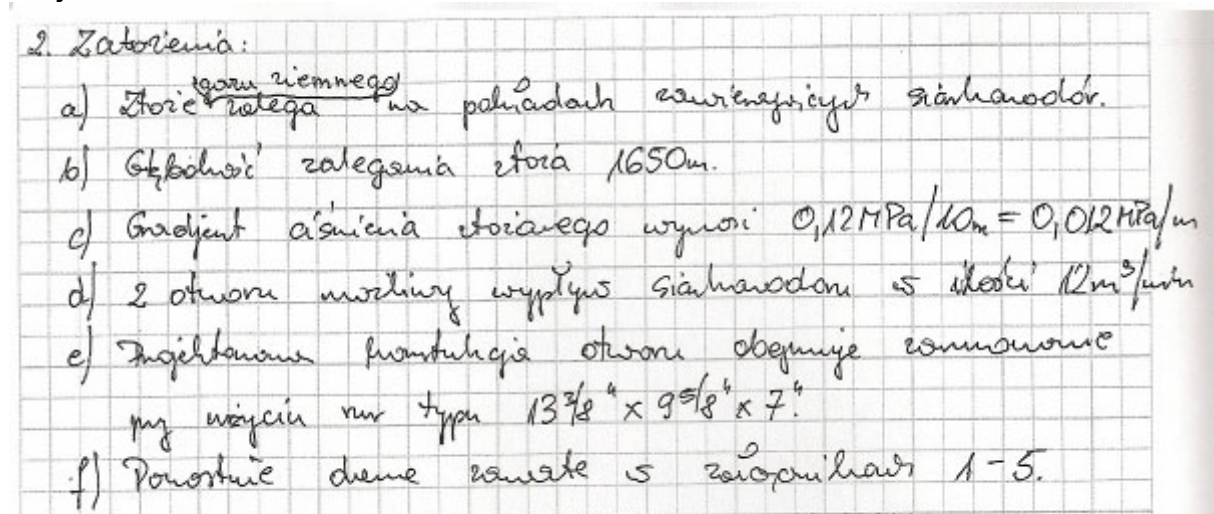 2. Założenia:
a) Złoże gazu ziemnego zalega na pokładach zawierających siarkowodór.
b) Głębokość zalegania złoża 1650m.
c) Gradient ciśnienia złożowego wynosi 0,12 MPa/10m = 0,012 MPa/m
d) Z otworu możliwy wypływ siarkowodoru w ilości 12m³/min
e) Projektowana konstrukcja otworu obejmuje zarurowanie
przy użyciu rur typu 13 3/8" x 9 5/8" x 7".
f) Pozostałe dane zawarte w załącznikach 1-5.